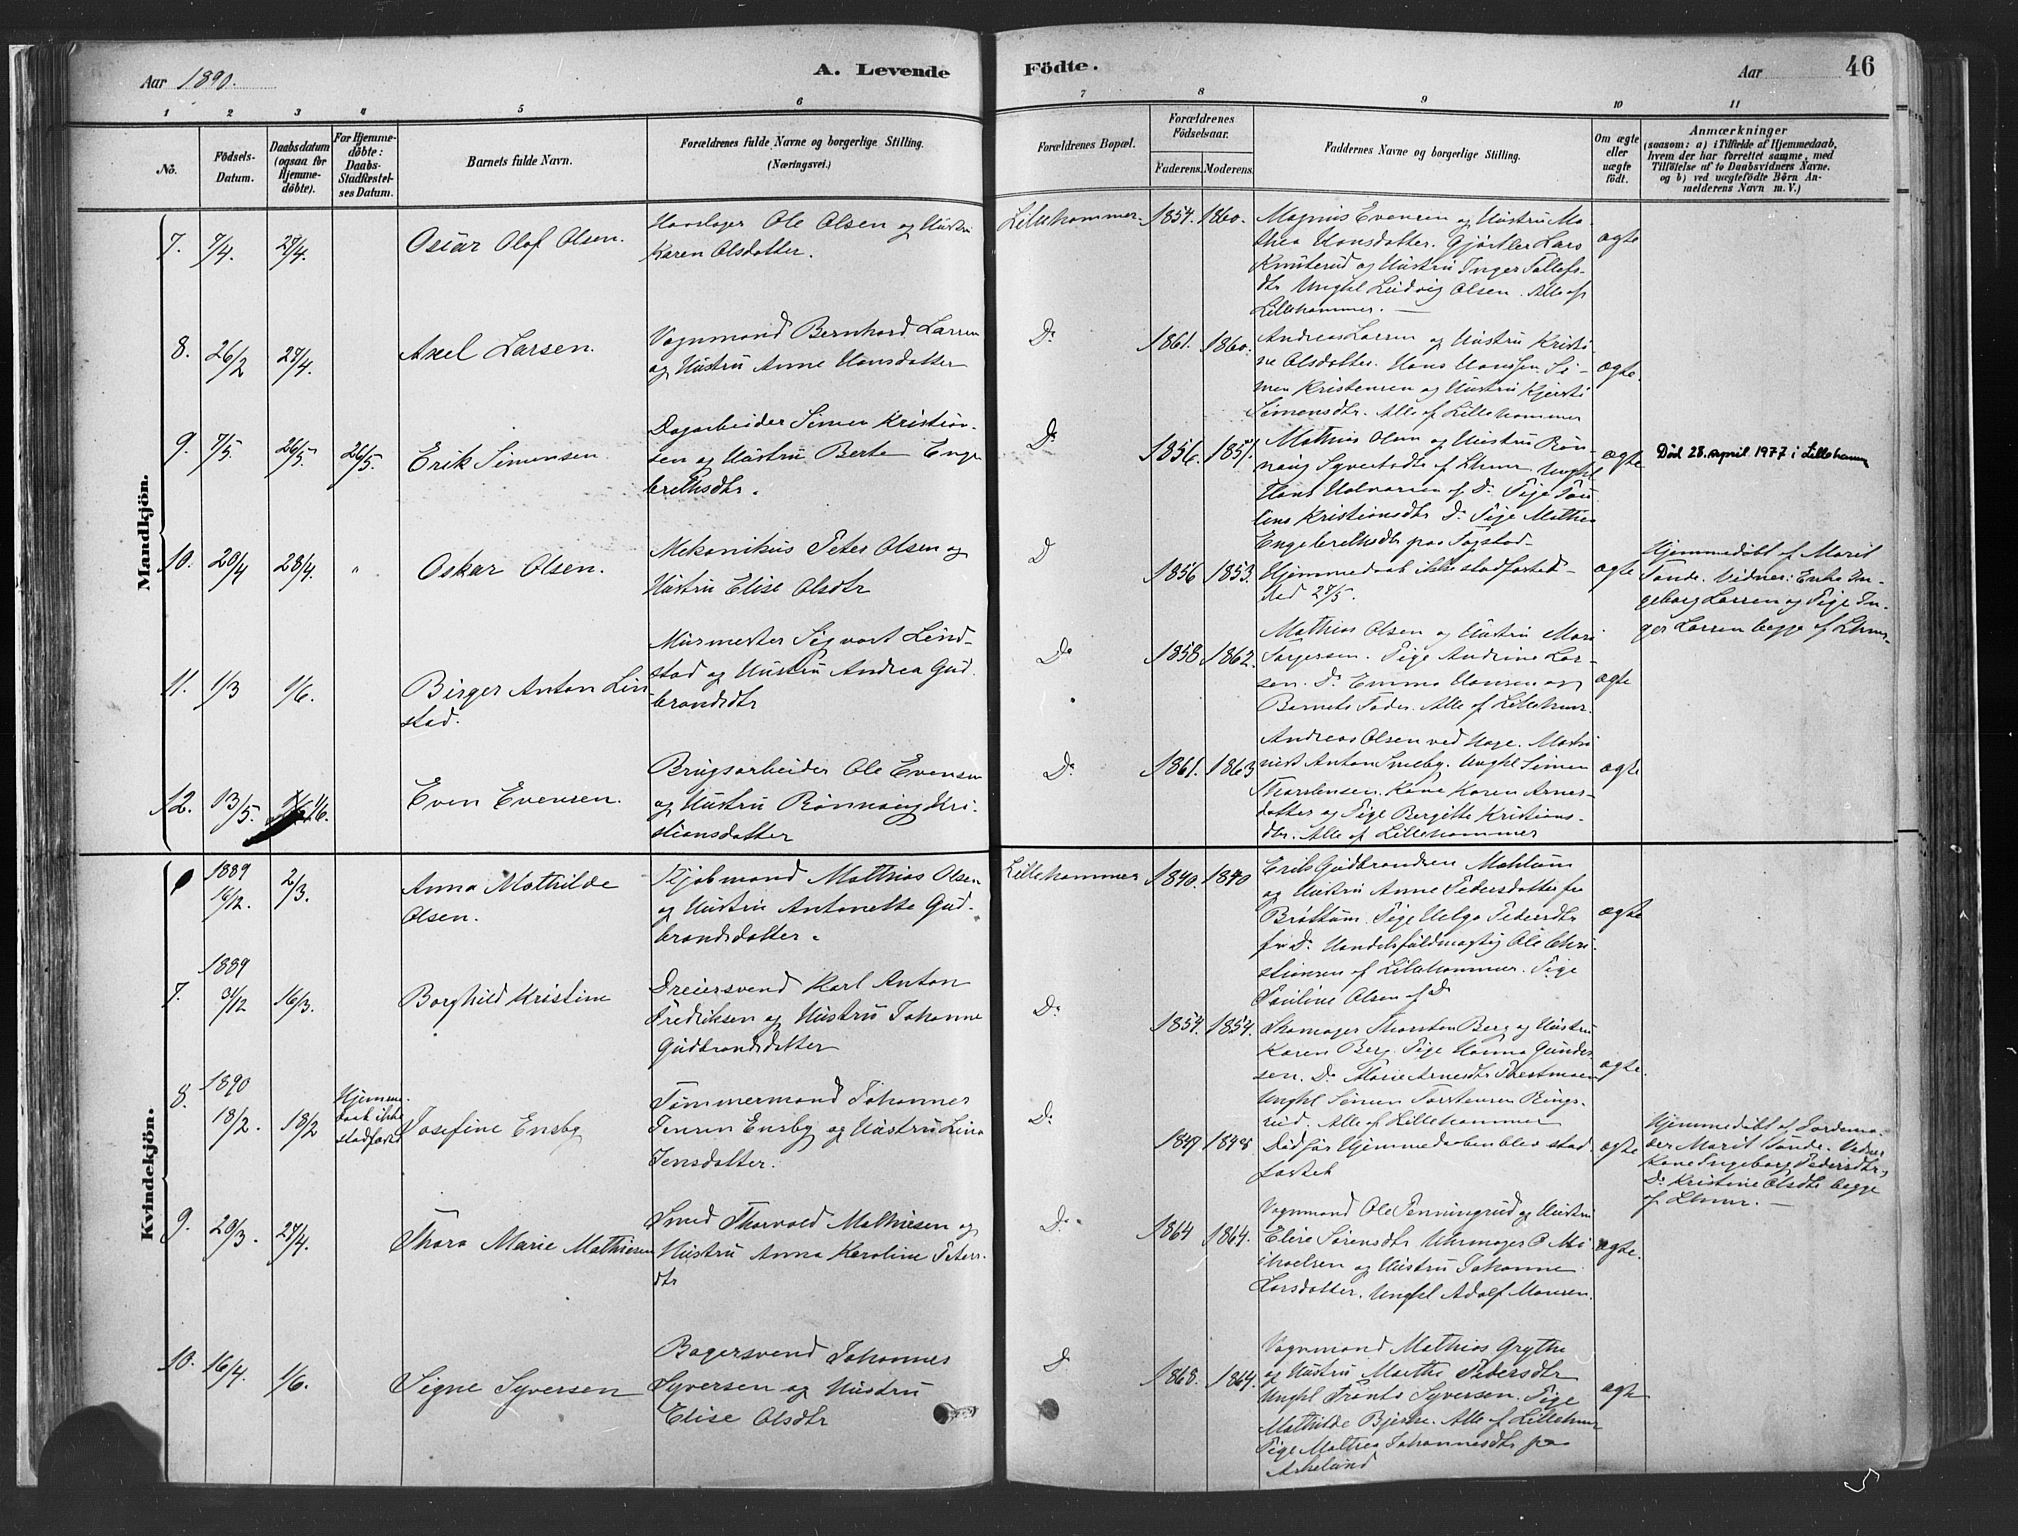 Aar 1890.
A. Levende
Födte.
Aar
46
1 2 3 4 5 6
7 8 9 10 11
No.
Födsels-
Datum.
Daabsdatum
(ogsaa for
Hjemme-
döbte).
For Hjemme-
döbte:
Daabs-
Stadfæstel-
ses Datum.
Barnets fulde Navn.
Forældrenes fulde Navne og borgerlige Stilling.
(Næringsvei.)
Forældrenes Bopæl.
Forældrenes
Födselsaar.
Faderens. Moderens.
Faddernes Navne og borgerlige Stilling.
Om ægte
eller
uægte
födt.
Anmærkninger
(saasom: a) i Tilfælde af Hjemmedaab,
hvem der har forrettet samme, med
Tilföielse af to Daabsvidners Navne,
og b) ved uægtefödte Börn An-
melderens Navn m. V.)
Mandkjön.
7. 7/4. 27/4.
Oscar Olof Olsen.
Ole Olsen og Hustru
Karen Olsdatter.
Lillehammer. 1854. 1860.
Magnus Evensen og Hustru Ma-
thea Hansdatter. Gjørtler Lars
Knuterud og Hustru Inger Tollefs-
dtr Unghl Ludvig Olsen. Alle af
Lillehammer.
ægte
8. 26/2 27/4.
Axel Larsen.
Vognmand Bernhard Larsen
og Hustru Anne Hansdatter
Do 1861. 1860.
Andreas Larsen og Hustru Kristi-
ne Olsdatter. Hans Hansen. Si-
men Kristensen og Hustru Kjersti
Simensdtr. Alle af Lillehammer
ægte.
9. 7/5. 26/5. 26/5.
Erik Simensen.
Dagarbeider Simen Kristian-
sen og Hustru Berte Enge
brethsdtr.
Do 1856. 1851.
Mathias Olsen og Hustru Røn-
naug Syversdtr af Lhmr Unghl
Hans Halvorsen af Do Pige Pau
line Kristiansdtr Do Pige Mathea
Engebrethsdtr paa
ægte
Død 28. april 1977 i Lillehammer
10. 20/4 28/4. "
Oskar Olsen.
Mekanikus Peter Olsen og
Hustru Elise Olsdtr
D 1856 1853.
Hjemmedaab ikke stadfæsted
død 27/5.
ægte
Hjemmedøbt af Marit
Tande. Vidner: Enke In-
geborg Larsen og Pige In-
ger Larsen begge af Lhmr
11. 1/3 1/6.
Birger Anton Lin
stad.
Murmester Sigvart Lind-
stad og Hustru Andrea Gud
brandsdtr
Do 1858 1862.
Mathias Olsen og Hustru Mari
Torgersen. Pige Andrine Lar-
sen. Do Emma Hansen og
Barnets Fader. Alle af Lillehmr.
ægte
12. 13/5. 1/6.
Even Evensen.
Brugsarbeider Ole Evensen
og Hustru Rønnaug Kri-
stiansdatter
Do 1861. 1863
Andreas Olsen ved Hage. Maski
nist Anton Smeby. Unghl Simen
Thorstensen. Kone Karen Arnes-
datter og Pige Bergitte Kristians-
dtr. Alle af Lillehammer
ægte
Kvindekjön.
1889
16/12. 2/3.
Anna Mathilde
Olsen.
Mathias Olsen
og Hustru Antonette Gud-
brandsdatter.
Lillehammer 1840. 1840
Erik Gudbrandsen Mæhlum
og Hustru Anne Pedersdatter fra
Brøttum. Pige Helga Pedersdtr
fra Do. Handelsfuldmægtig Ole Chri-
stiansen af Lillehammer. Pige
Pauline Olsen af Do
ægte
7. 1889
31/12 16/3.
Borghild Kristine
Dreiersvend Karl Anton
Fredriksen og Hustru Johanne
Gudbrandsdatter
Do 1854. 1854.
Skomager Thorsten Berg og Hustru
Karen Berg. Pige Hanna Gunder
sen. Do Marie Arnesdtr
Unghl Simen Torstensen Rings-
rud. Alle af Lillehammer
ægte.
8. 1890
18/2. 18/2
Hjemme
daab ikke
stadfæstet
Josefine Ensby
Tømmermand Johannes
Jensen Ensby og Hustru Lina
Jensdatter.
Do 1849 1848
Død før Hjemmedaaben blev stad
fæstet
ægte
Hjemmedøbt af Jordemo-
der Marit Tande. Vidner
Kone Ingeborg Pedersdtr,
Do Kristine Olsdtr begge
af Lhmr.
9. 29/3. 27/4.
Thora Marie Mathiesen
Smed Thorvald Mathiesen og
Hustru Anna Karoline Peters-
dtr
Do 1864 1864.
Vognmand Ole Penningrud og Hustru
Elise Sørensdtr Uhrmager P. Mi
chaelsen og Hustru Johanne
Larsdatter. Unghl Adolf Monsen.
ægte.
10. 16/4. 1/6.
Signe Syversen
Bagersvend Johannes
Syversen og Hustru
Elise Olsdtr
D 1868. 1864.
Vognmand Mathias Grythe
og Hustru Marthe Pedersdtr
Unghl Frants Syversen. Pige
Mathilde Bjerke. Alle af Lillehmr
Pige Mathea Johannesdtr paa
ægte
5